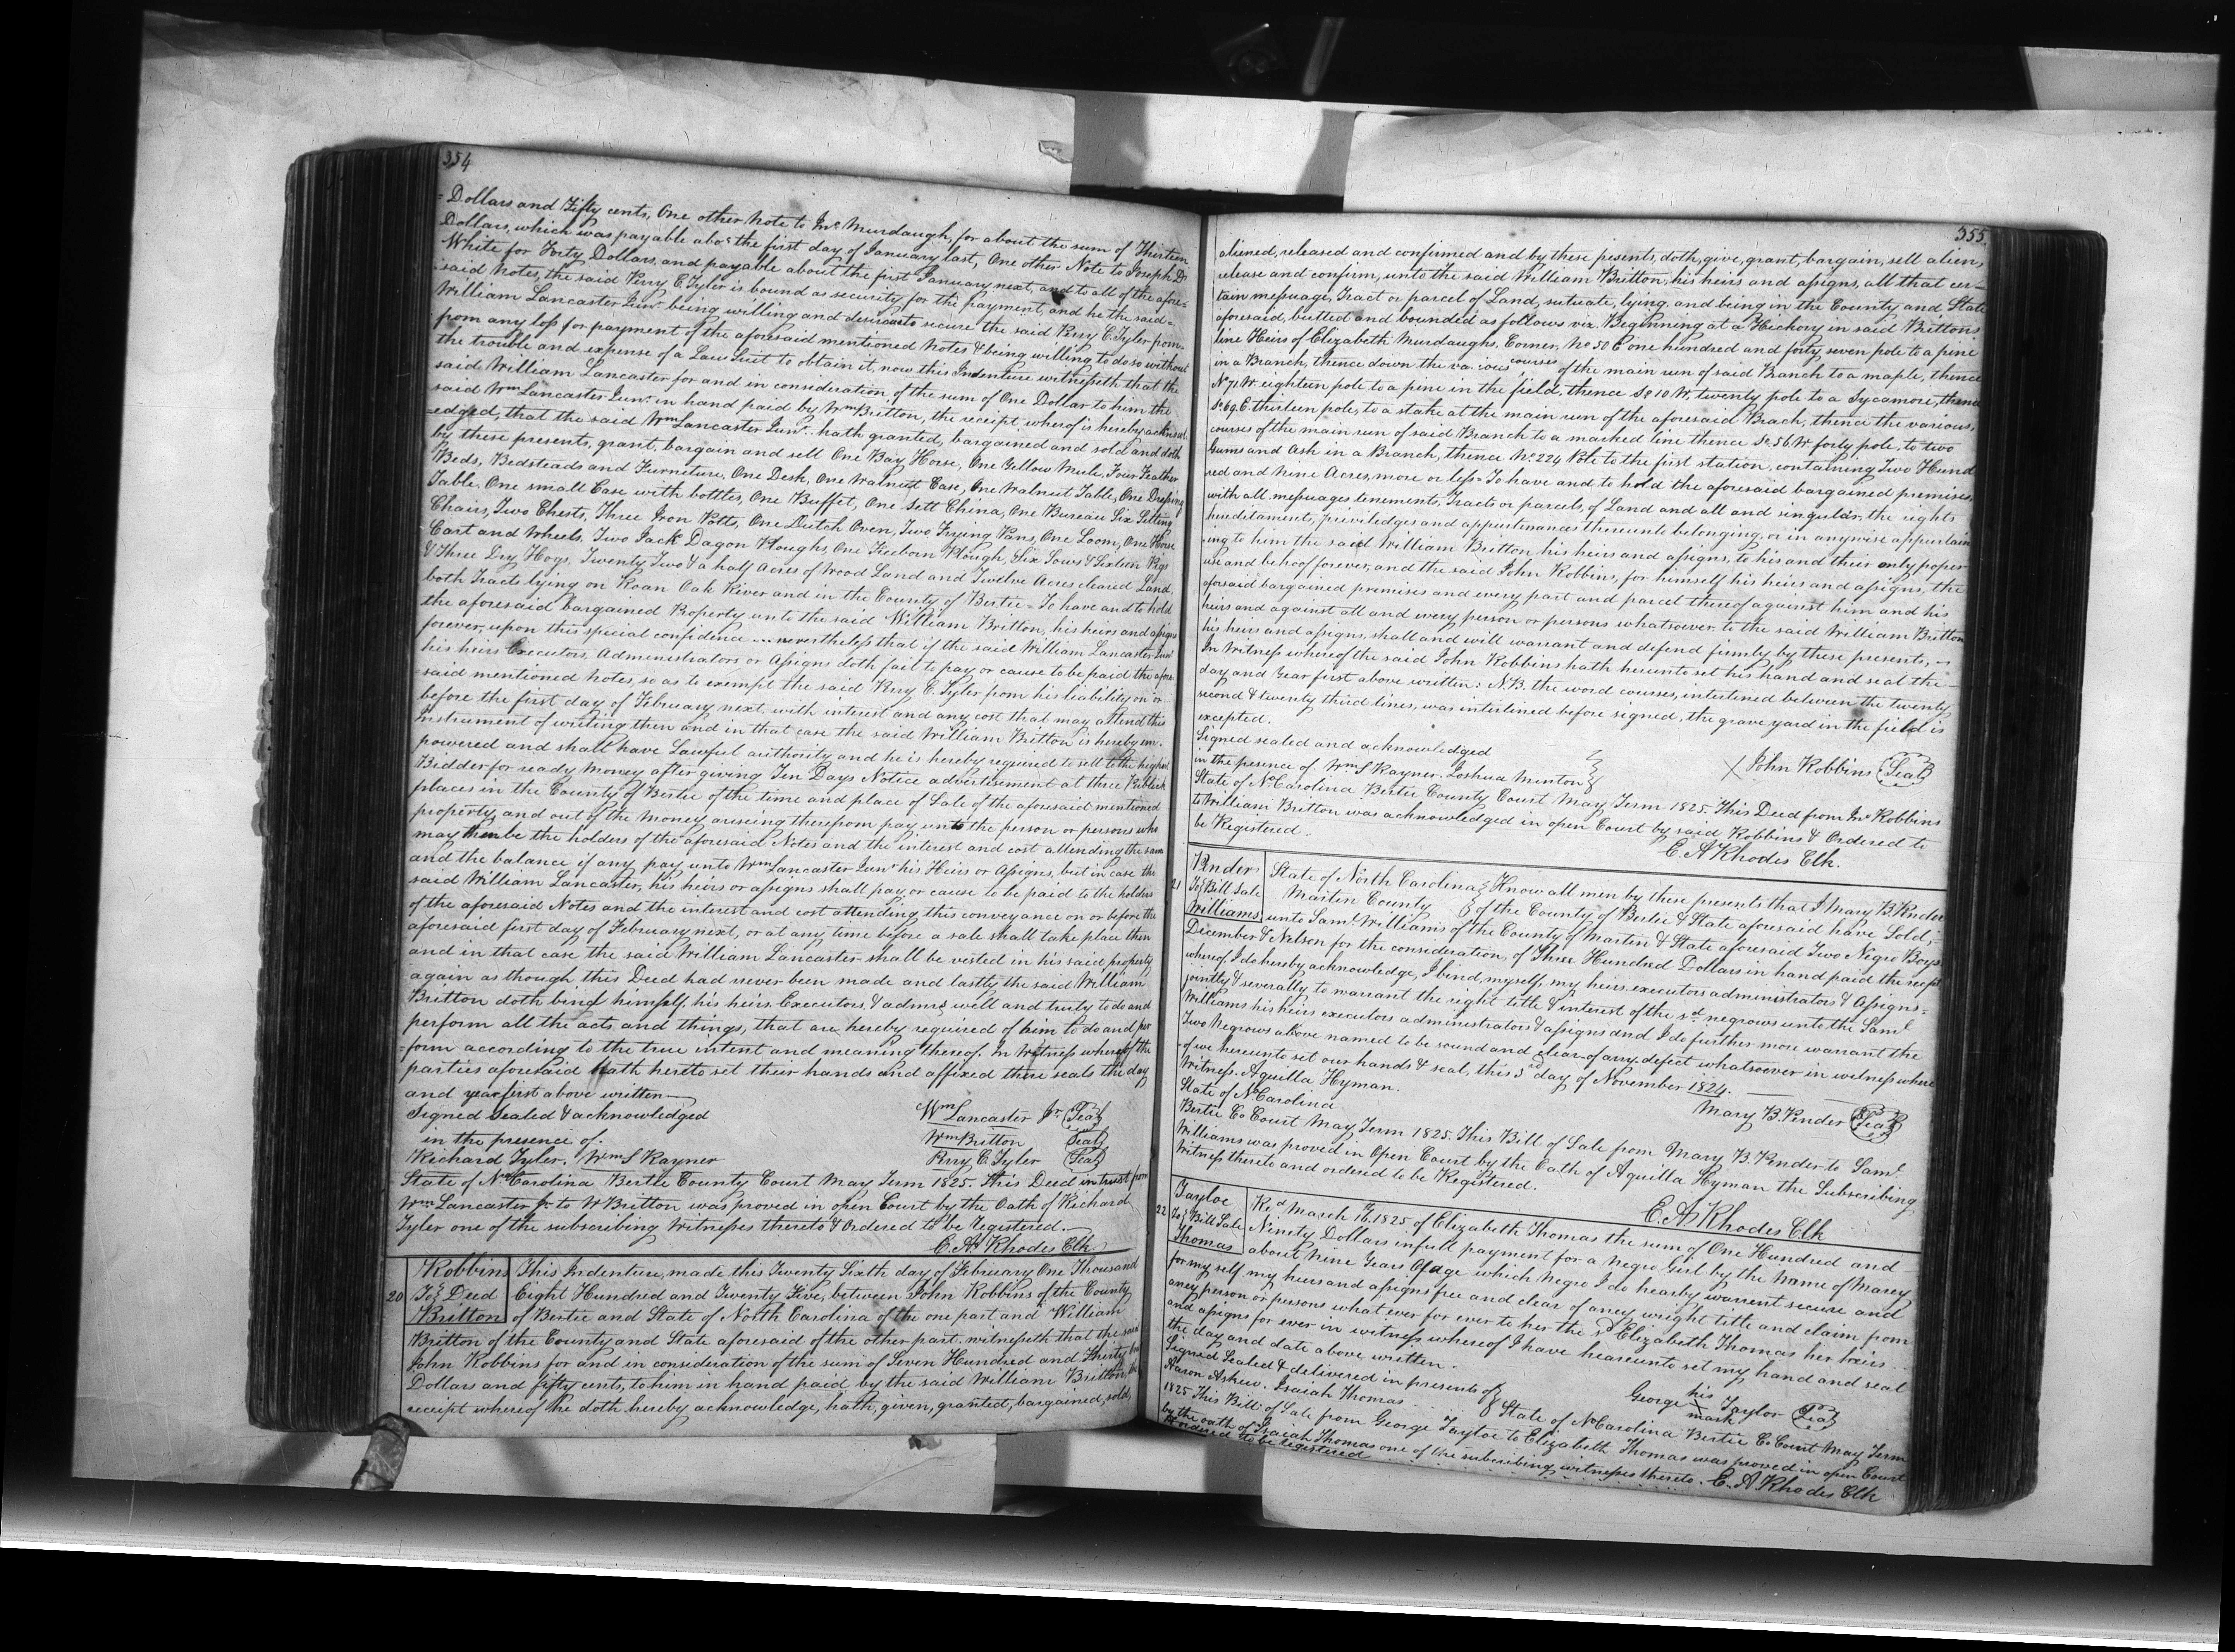 354
= Dollars and Fifty cents, One other Note to Jno. Murdaugh, for about the sum of Thirteen
Dollars, which was payable abot. the first day of January last, One other Note to Joseph D.
White for Forty Dollars, and payable about the first January next, and to all of the afore=
said Notes, the said Perry C. Tyler is bound as security for the payment, and he the said =
William Lancaster Junr. being willing and desirous to secure the said Perry C. Tyler from
from any loss for payment of the aforesaid mentioned Notes & being willing to do so without
the trouble and expense of a Law Suit to obtain it, now this Indenture witnesseth that the
said William Lancaster for and in consideration of the sum of One Dollar to him the
said Wm Lancaster Junr. in hand paid by Wm Britton, the receipt wherof is hereby acknowl
=edged, that the said Wm Lancaster Junr. hath granted, bargained and sold and doth
by these presents, grant, bargain and sell One Bay Horse, One Yellow Mule, Four Feather
Beds, Bedsteads and Furniture, One Desk, One Walnut Case, One Walnut Table, One Dressing
Table, One small Case with bottles, One Buffet, One Sett China, One Bureau Six Setting
Chairs, Two Chests, Three Iron Potts, One Dutch Oven, Two Frying Pans, One Loom, One Horse
Cart and Wheels, Two Jack Dagon Ploughs, One Freeborn Plough, Six Sows & Sixteen Pigs
& Three Dry Hogs, Twenty Two & a half Acres of Wood Land and Twelve Acres cleared Land
both Tracts lying on Roan Oak River and in the County of Bertie = To have and to hold
the aforesaid bargained Property unto the said William Britton, his heirs and assigns
forever, upon this special confidence nevertheless that if the said William Lancaster Junr
his heirs Executors, Administrators or Assigns doth fail to pay or cause to be paid the afore
said mentioned Notes, so as to exempt the said Perry C. Tyler from his liability on or
before the first day of February next, with interest and any cost that may attend this
instrument of writing then and in that case the said William Britton is hereby em=
powered and shall have Lawful authority and he is hereby required to sell to the highest
Bidder for ready Money after giving Ten Days Notice advertisement at three Publick
places in the County of Bertie of the time and place of Sale of the aforesaid mentioned
property, and out of the Money ariseing therefrom pay unto the person or persons who
may then be the holders of the aforesaid Notes and the interest and cost attending the same
and the balance if any pay unto Wm Lancaster Junr his Heirs or Assigns, but in case the
said William Lancaster, his heirs or assigns shall pay or cause to be paid to the holders
of the aforesaid Notes and the interest and cost attending this conveyance on or before the
aforesaid first day of February next, or at any time before a sale shall take place then
and in that case the said William Lancaster shall be vested in his said property
again as though this Deed had never been made and lastly the said William
Britton doth bend himself, his heirs Executors, & admrs well and truly to do and
perform all the acts and things, that are hereby required of him to do and per
=form according to the true intent and meaning thereof. In Witness whereof the
parties aforesaid hath hereto set their hands and affixed there seals the day
and year first above written
Signed Sealed & acknowledged
in the presence of.
Richard Tyler. Wm S Rayner
Wm Lancaster Jr. Seal
Wm Britton Seal
Perry C Tyler Seal
State of No. Carolina Bertie County Court May Term 1825. This Deed in trust from
Wm Lancaster Jr to W Britton was proved in open Court by the Oath of Richard
Tyler one of the subscribing Witnesses thereto & Ordered to be Registered.
E. A. Rhodes Clk.
20
Robbins
To Deed
Britton
This Indenture, made this Twenty Sixth day of February One Thousand
Eight Hundred and Twenty Five, between John Robbins of the County
of Bertie and State of North Carolina of the one part and William
Britton of the County and State aforesaid of the other part. witnesseth that the said
John Robbins for and in consideration of the sum of Seven Hundred and Thirty
Dollars and fifty cents, to him in hand paid by the said William Britton, the
receipt whereof he doth hereby acknowledge, hath, given, granted, bargained, sold,
355
aliened, released and confirmed and by these presents, doth, give, grant, bargain, sell alien,
release and confirm, unto the said William Britton, his heirs and assigns, all that cer=
tain messuage, Tract or parcel of Land, sutuate, lying, and being in the County and State
aforesaid, butted and bounded as follows viz. Beginning at a Hickory in said Brittons
line Heirs of Elizabeth Murdaughs, Corner, No 50 E one hundred and forty seven pole to a pine
in a Branch, thence down the various courses of the main run of said Branch to a maple, thence
No 71 W. eighteen pole to a pine in the field, thence So 10 W. twenty pole to a Sycamore, thence
So 69 E. thirteen pole, to a stake at the main run of the aforesaid Brach, thence the various,
courses of the main run of said Branch to a marked line thence So. 56 W forty pole, to two
Gums and Ash in a Branch, thence No. 224 Pole to the first station, containing Two Hund
red and Nine Acres, more or less = To have and to hold the aforesaid bargained premises
with all messuages tenements, Tracts or parcels, of Land and all and singular, the rights
hereditaments, priviledges and appurtenances thereunto belonging, or in anywise appertain
=ing to him the said William Britton his heirs and assigns, to his and their only proper
use and behoof forever, and the said John Robbins, for himself his heirs and assigns, the
aforsaid bargained premises and every part and parcel thereof against him and his
heirs and against all and every person or persons whatsoever. to the said William Britton
his heirs and assigns, shall and will warrant and defend firmly by these presents,
In Witness whereof the said John Robbins hath hereunto set his hand and seal the
day and Year first above written: N.B. the word courses, interlined between the twenty
second & twenty third lines, was interlined before signed, the grave yard in the field is
excepted.
Signed sealed and acknowledged
in the presence of. Wm S Rayner. Joshua Minton
John Robbins Seal
State of No. Carolina Bertie County Court May Term 1825. This Deed from Jno Robbins
to William Britton was acknowledged in open Court by said Robbins & Ordered to
be Registered.
E. A Rhodes Clk.
21
Pender
To Bill Sale
Williams
State of North Carolina Know all men by these presents that I Mary B. Pender
Martin County of the County of Bertie & State aforesaid have Sold;
unto Saml. Williams of the County of Martin & State aforesaid Two Negro Boys
December & Nelson for the consideration, of Three Hundred Dollars in hand paid the recept
whereof, I do hereby acknowledge, I bind, myself, my heirs, executors administrators & Assigns =
jointly & severally to warrant the right title & interest of the sd. negrows unto the Saml
Williams his heirs executors administrators & assigns and I do further more warrant the
Two Negrows above named to be sound and clear of any, defect whatsoever in witness where
=of we hereunto set our hands & seal, this 3rd day of November 1824.
Witness. Aquilla Hyman.
Mary B. Pender Seal
State of No Carolina
Bertie Co Court May Term 1825. This Bill of Sale from Mary B. Pender to Saml
Williams was proved in Open Court by the Oath of Aquilla Hyman the Subscribing
Witness thereto and ordered to be Registered.
E. A. Rhodes Clk
22
Tayloe
To Bill Sale
Thomas
Red. March 16th. 1825 of Elizabeth Thomas the sum of One Hundred and
Ninety Dollars in full payment for a Negro Girl by the Name of Marey
about Nine Years Of age which Negro I do hearby warrent secure and
for my self my heirs and assigns free and clear of aney wright title and claim from
aney person or persons what ever for ever to her the sd Elizabeth Thomas her heirs
and assigns for ever in witness whereof I have heareunto set my hand and seal
the day and date above written.
Signed Sealed & delivered in presents of
Aaron Askew. Isaiah Thomas
George his X mark Taylor Seal
State of No Carolina Bertie Co Court May Term
1825 This Bill of Sale from George Tayloe to Elizabeth Thomas was proved in open Court
by the oath of Isaiah Thomas one of the subcribing witnesses thereto. E. A Rhodes Clk
& ordered to be registered